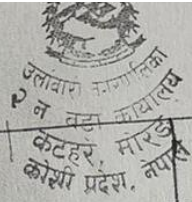 उलावारी नगरपालिका
२ नं वडा कार्यालय
केटहरे, मोरङ
कोशी प्रदेश, नेपाल